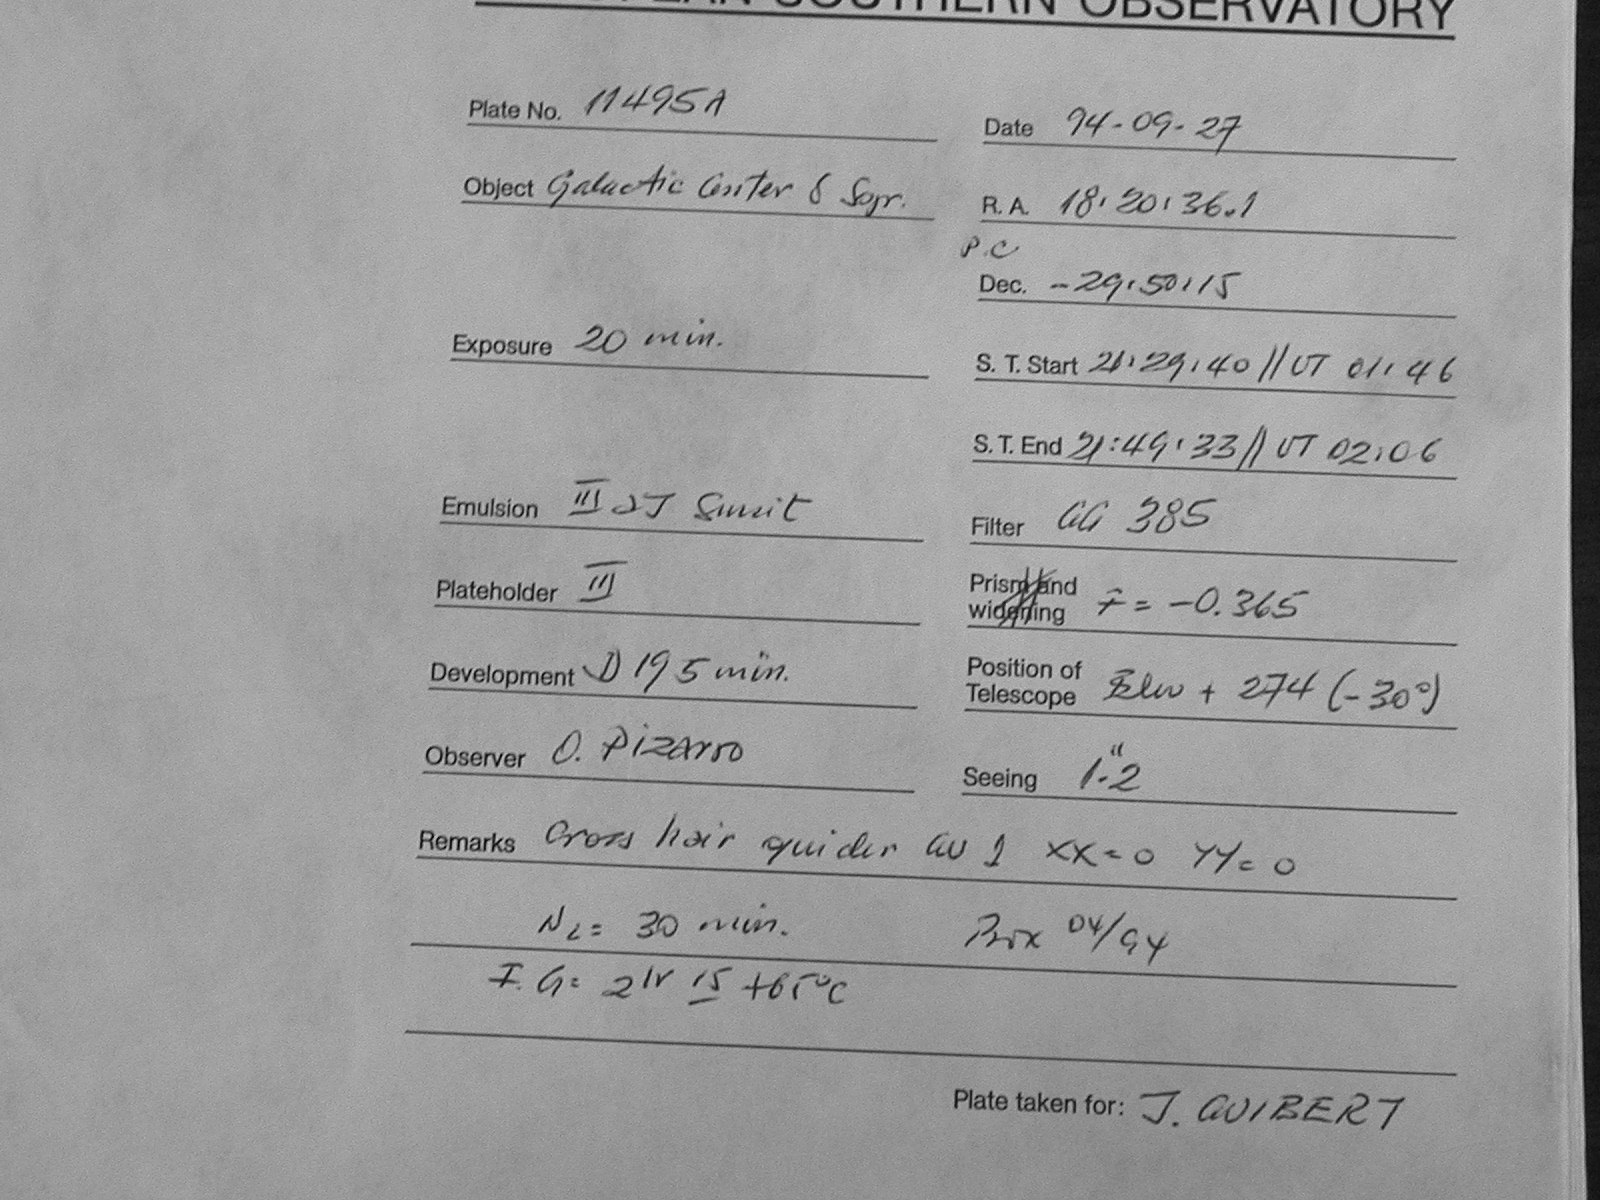 SOUTHERN OBSERVATORY
Plate No. 11495A
Date 94-09-27
Object Galactic Center & Sgr.
R. A. 18:20:36.1
P.C
Dec. -29:50:15
Exposure 20 min.
S. T. Start 21:29:40 // UT 01:46
S. T. End 21:49:33 // UT 02:06
Emulsion III
Filter GG 385
Plateholder III
Prism and
widening = -0.365
Development D 19 5 min.
Position of
Telescope + 274 (-30°)
Observer O. Pizarro
Seeing 1".2
Remarks Cross hair guider GU 1 XX=0 YY=0
N2= 30 min. Box 04/94
F. G= 2hr 15 +65°C
Plate taken for: J. GUIBERT